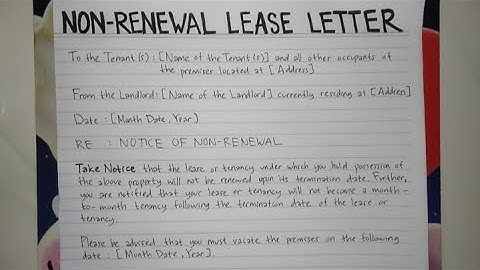 NON-RENEWAL LEASE LETTER
To the Tenant(s): [Name of the Tenant(s)] and all other occupants of
the premises located at [Address]
From the Landlord: [Name of the Landlord] currently residing at [Address]
Date : [Month Date, Year]
RE : NOTICE OF NON-RENEWAL
Take Notice that the lease or tenancy under which you hold possession of
the above property will not be renewed upon its termination date. Further,
you are notified that your lease or tenancy will not become a month-
to-month tenancy following the termination date of the lease or
tenancy.
Please be advised that you must vacate the premises on the following
date : [Month Date, Year].